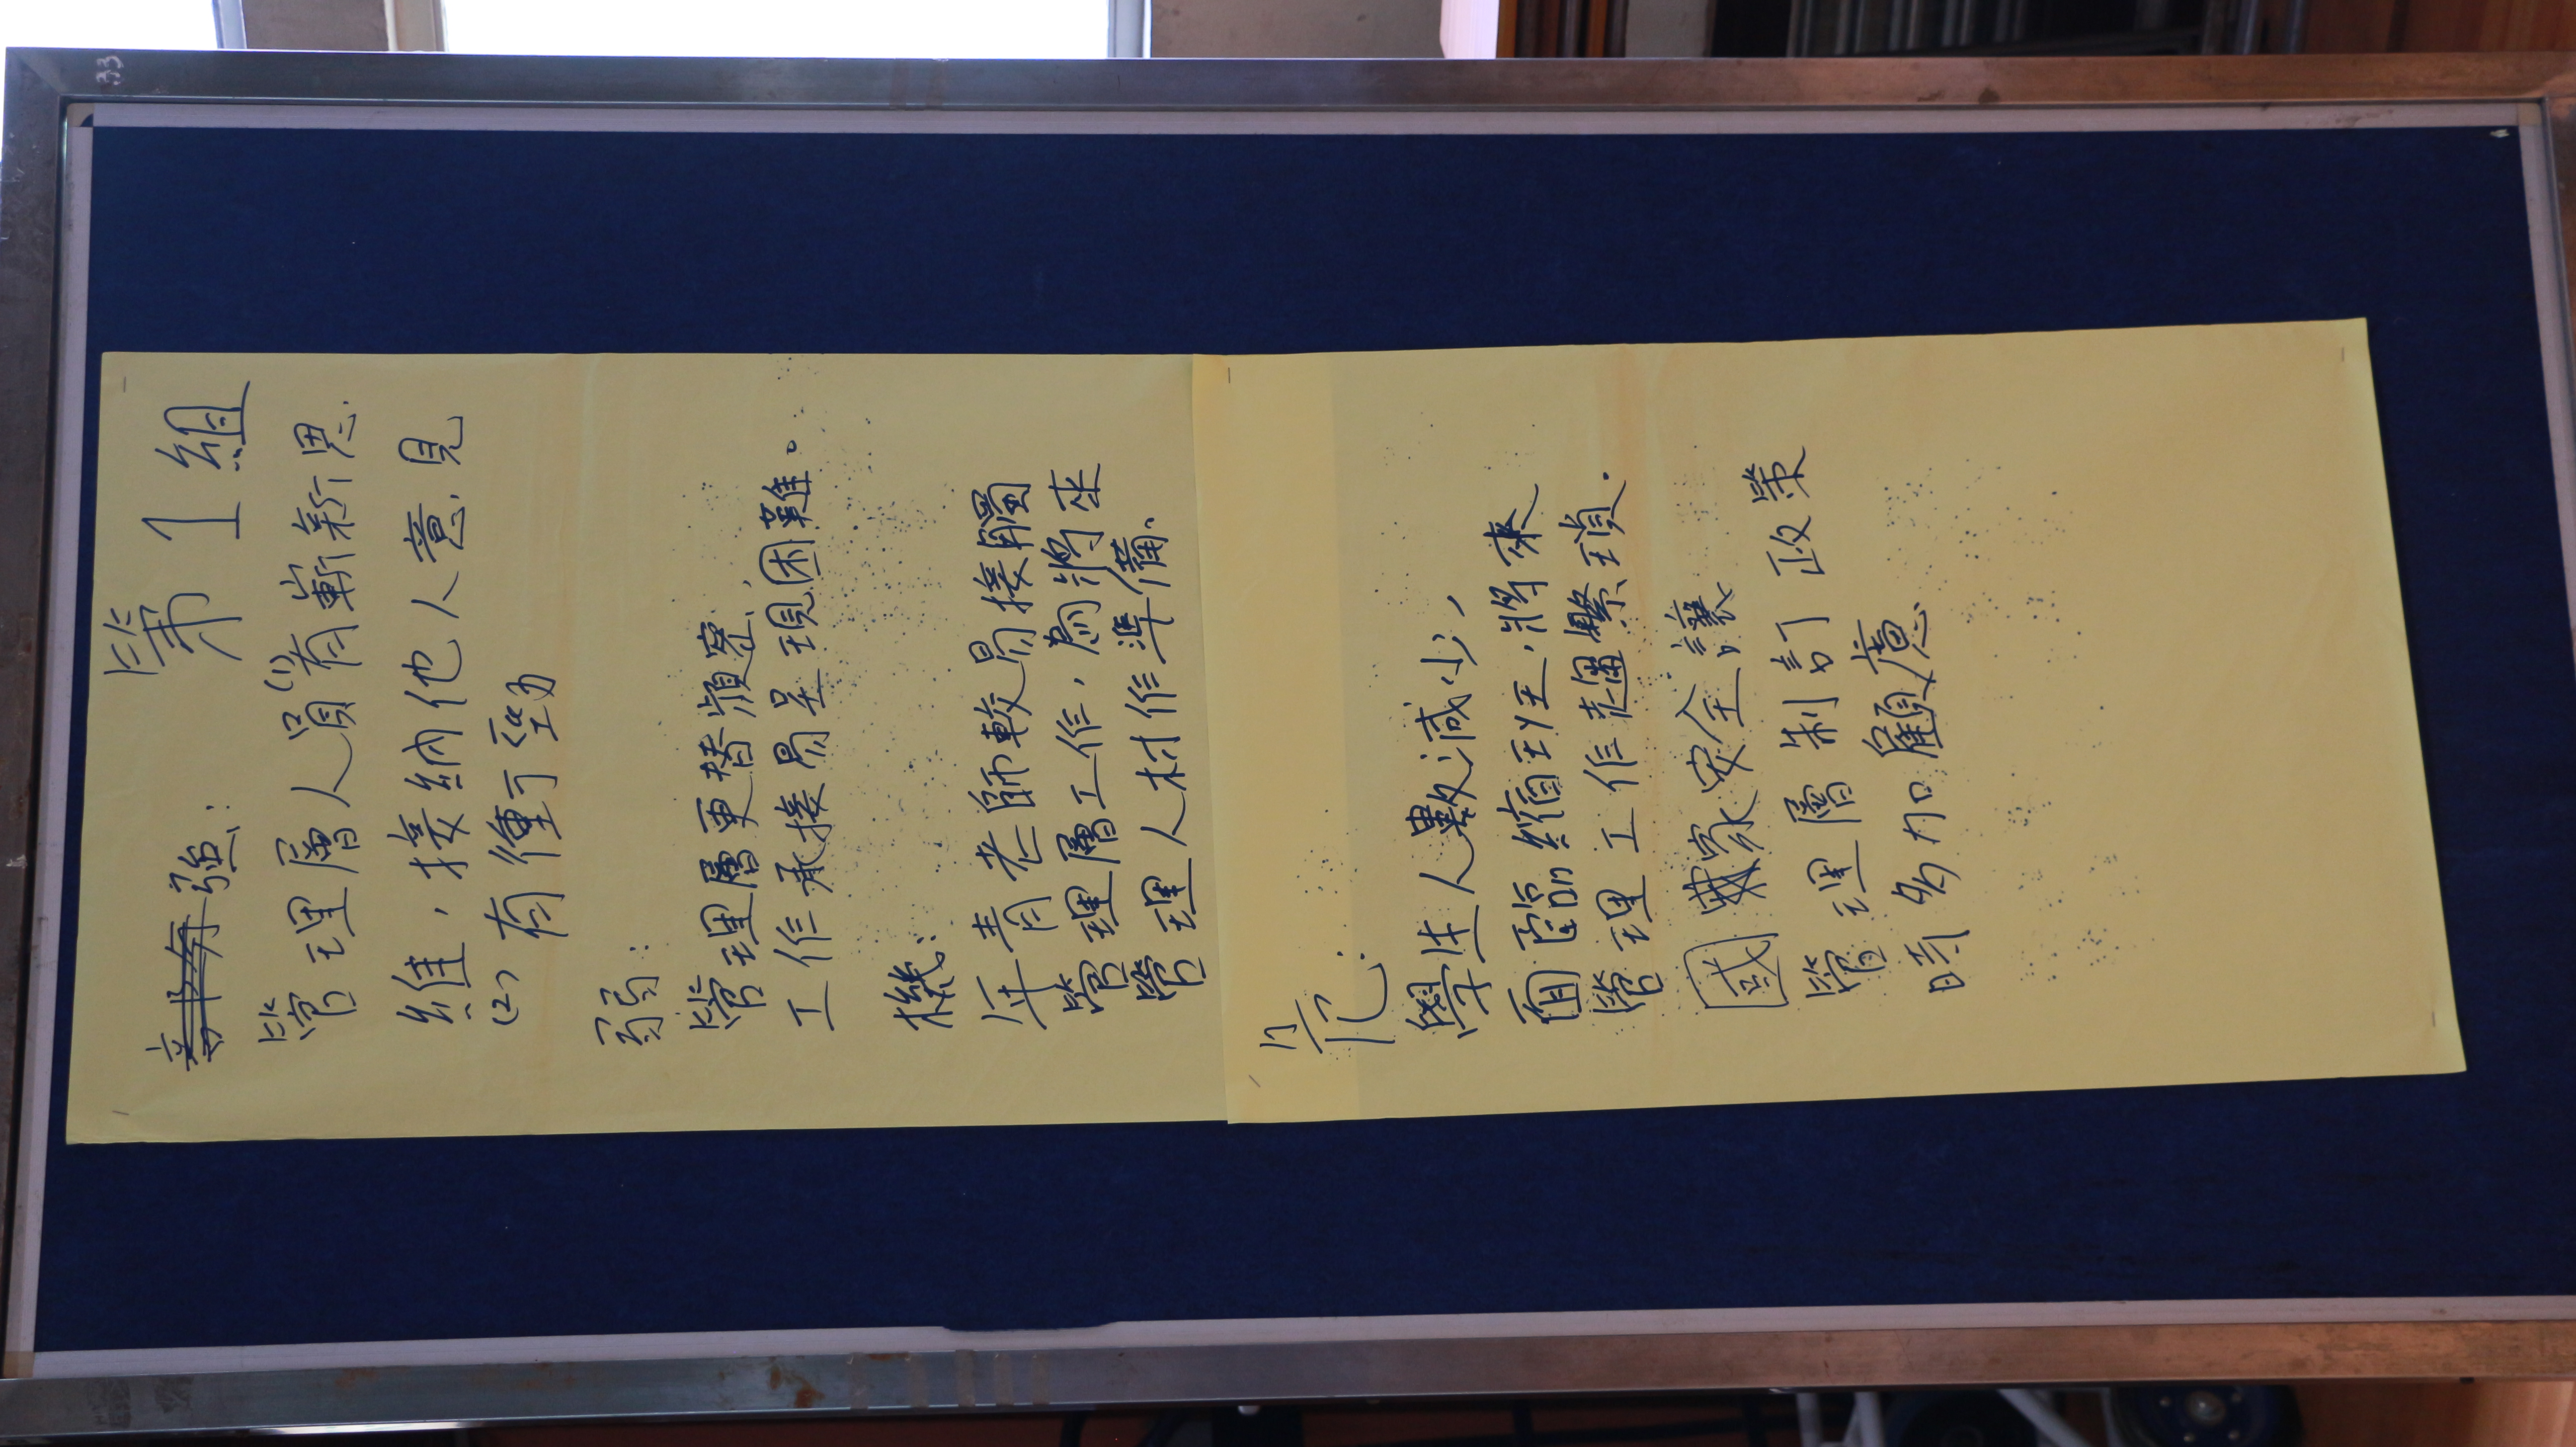 第1組
強:
管理層人員(1)有嶄新思
維，接納他人意見
(2)有衝勁
弱:
管理層更替頻密，
工作承接易呈現困難。
機:
年青老師較易接觸
管理層工作，為將來
管理人材作準備。
危:
學生人數減少，
面臨縮班，將來
管理工作範圍繁瑣.
國家安全讓
管理層制訂政策
時多加顧慮
33